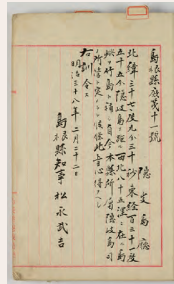 島根縣庶第十一號
隱岐島廳
北緯三十七度九分三十秒東經百三十一度
五十五分隱岐島ヲ距ル西北八十五浬ニ在ル島
嶼ヲ竹島ト稱シ自今本縣所屬隱岐島司
ノ所管ト定メラル候條此旨心得フヘシ
右訓令ス
明治三十八年二月二十二日
島根縣知事松永武吉